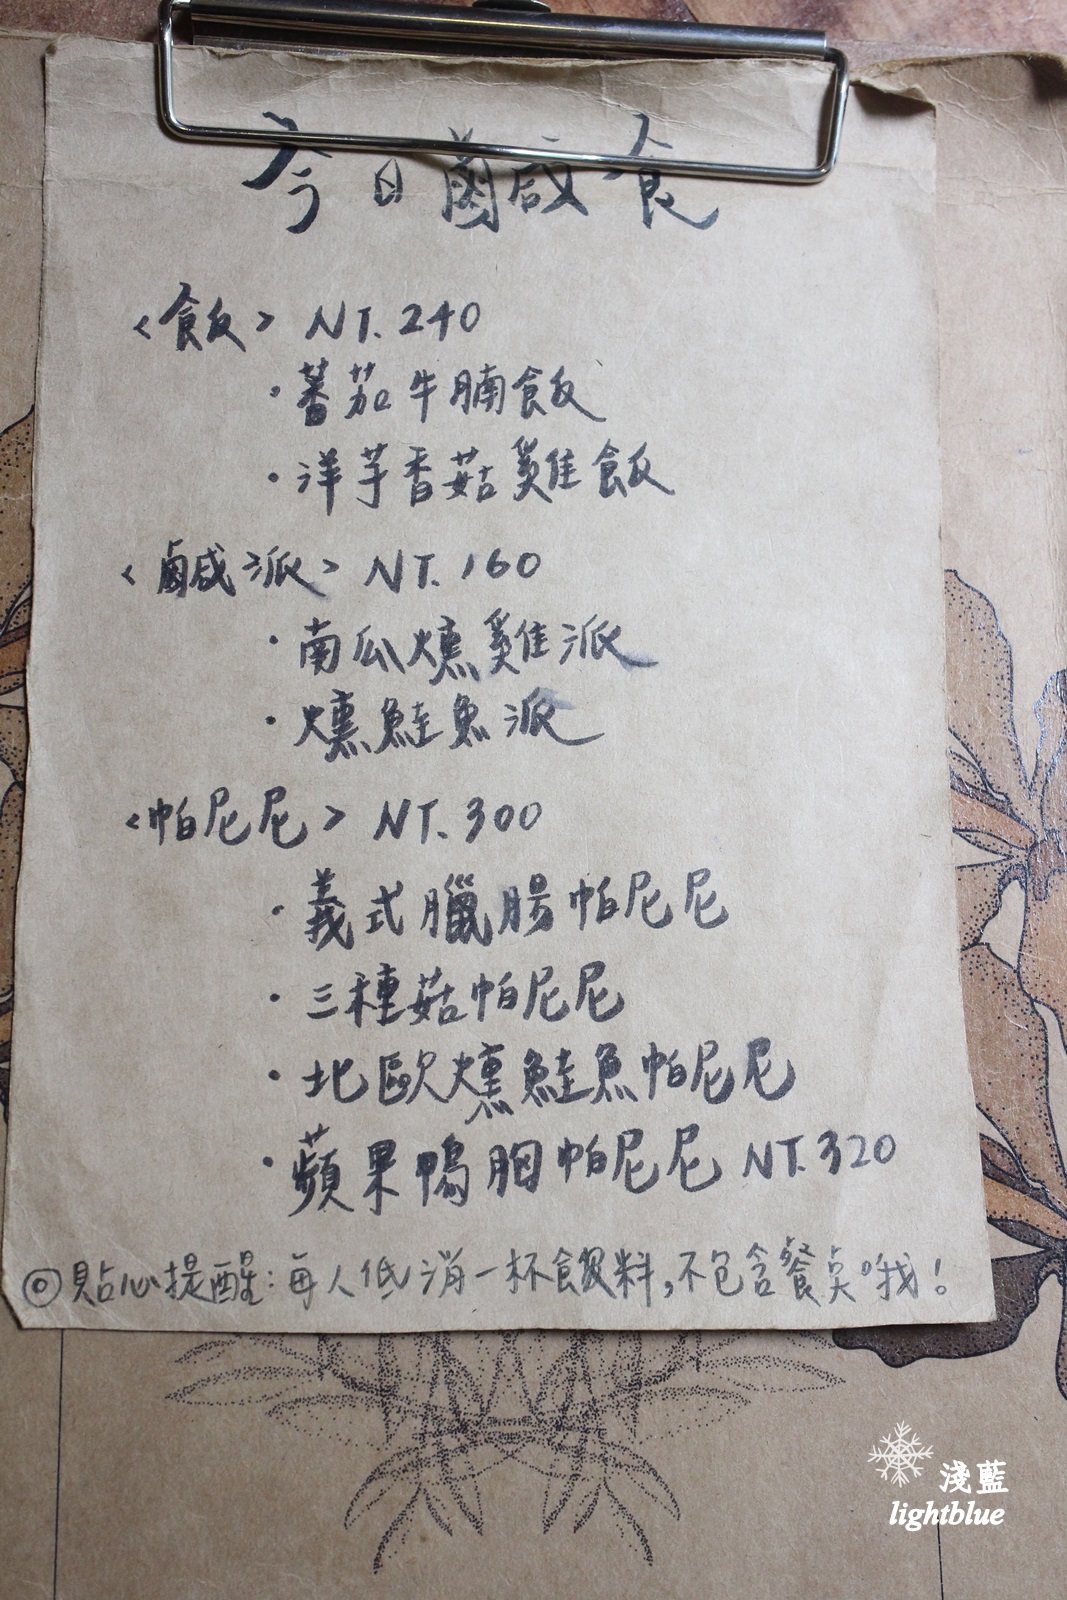 今日鹹食
<飯> NT.240
·蕃茄牛腩飯
·洋芋香菇雞飯
<鹹派> NT.160
·南瓜燻雞派
·燻鮭魚派
<帕尼尼> NT.300
·義式臘腸帕尼尼
·三種菇帕尼尼
·北歐燻鮭魚帕尼尼
·蘋果鴨胸帕尼尼 NT.320
◎貼心提醒:每人低消一杯飲料,不包含餐點哦!
淺藍
lightblue